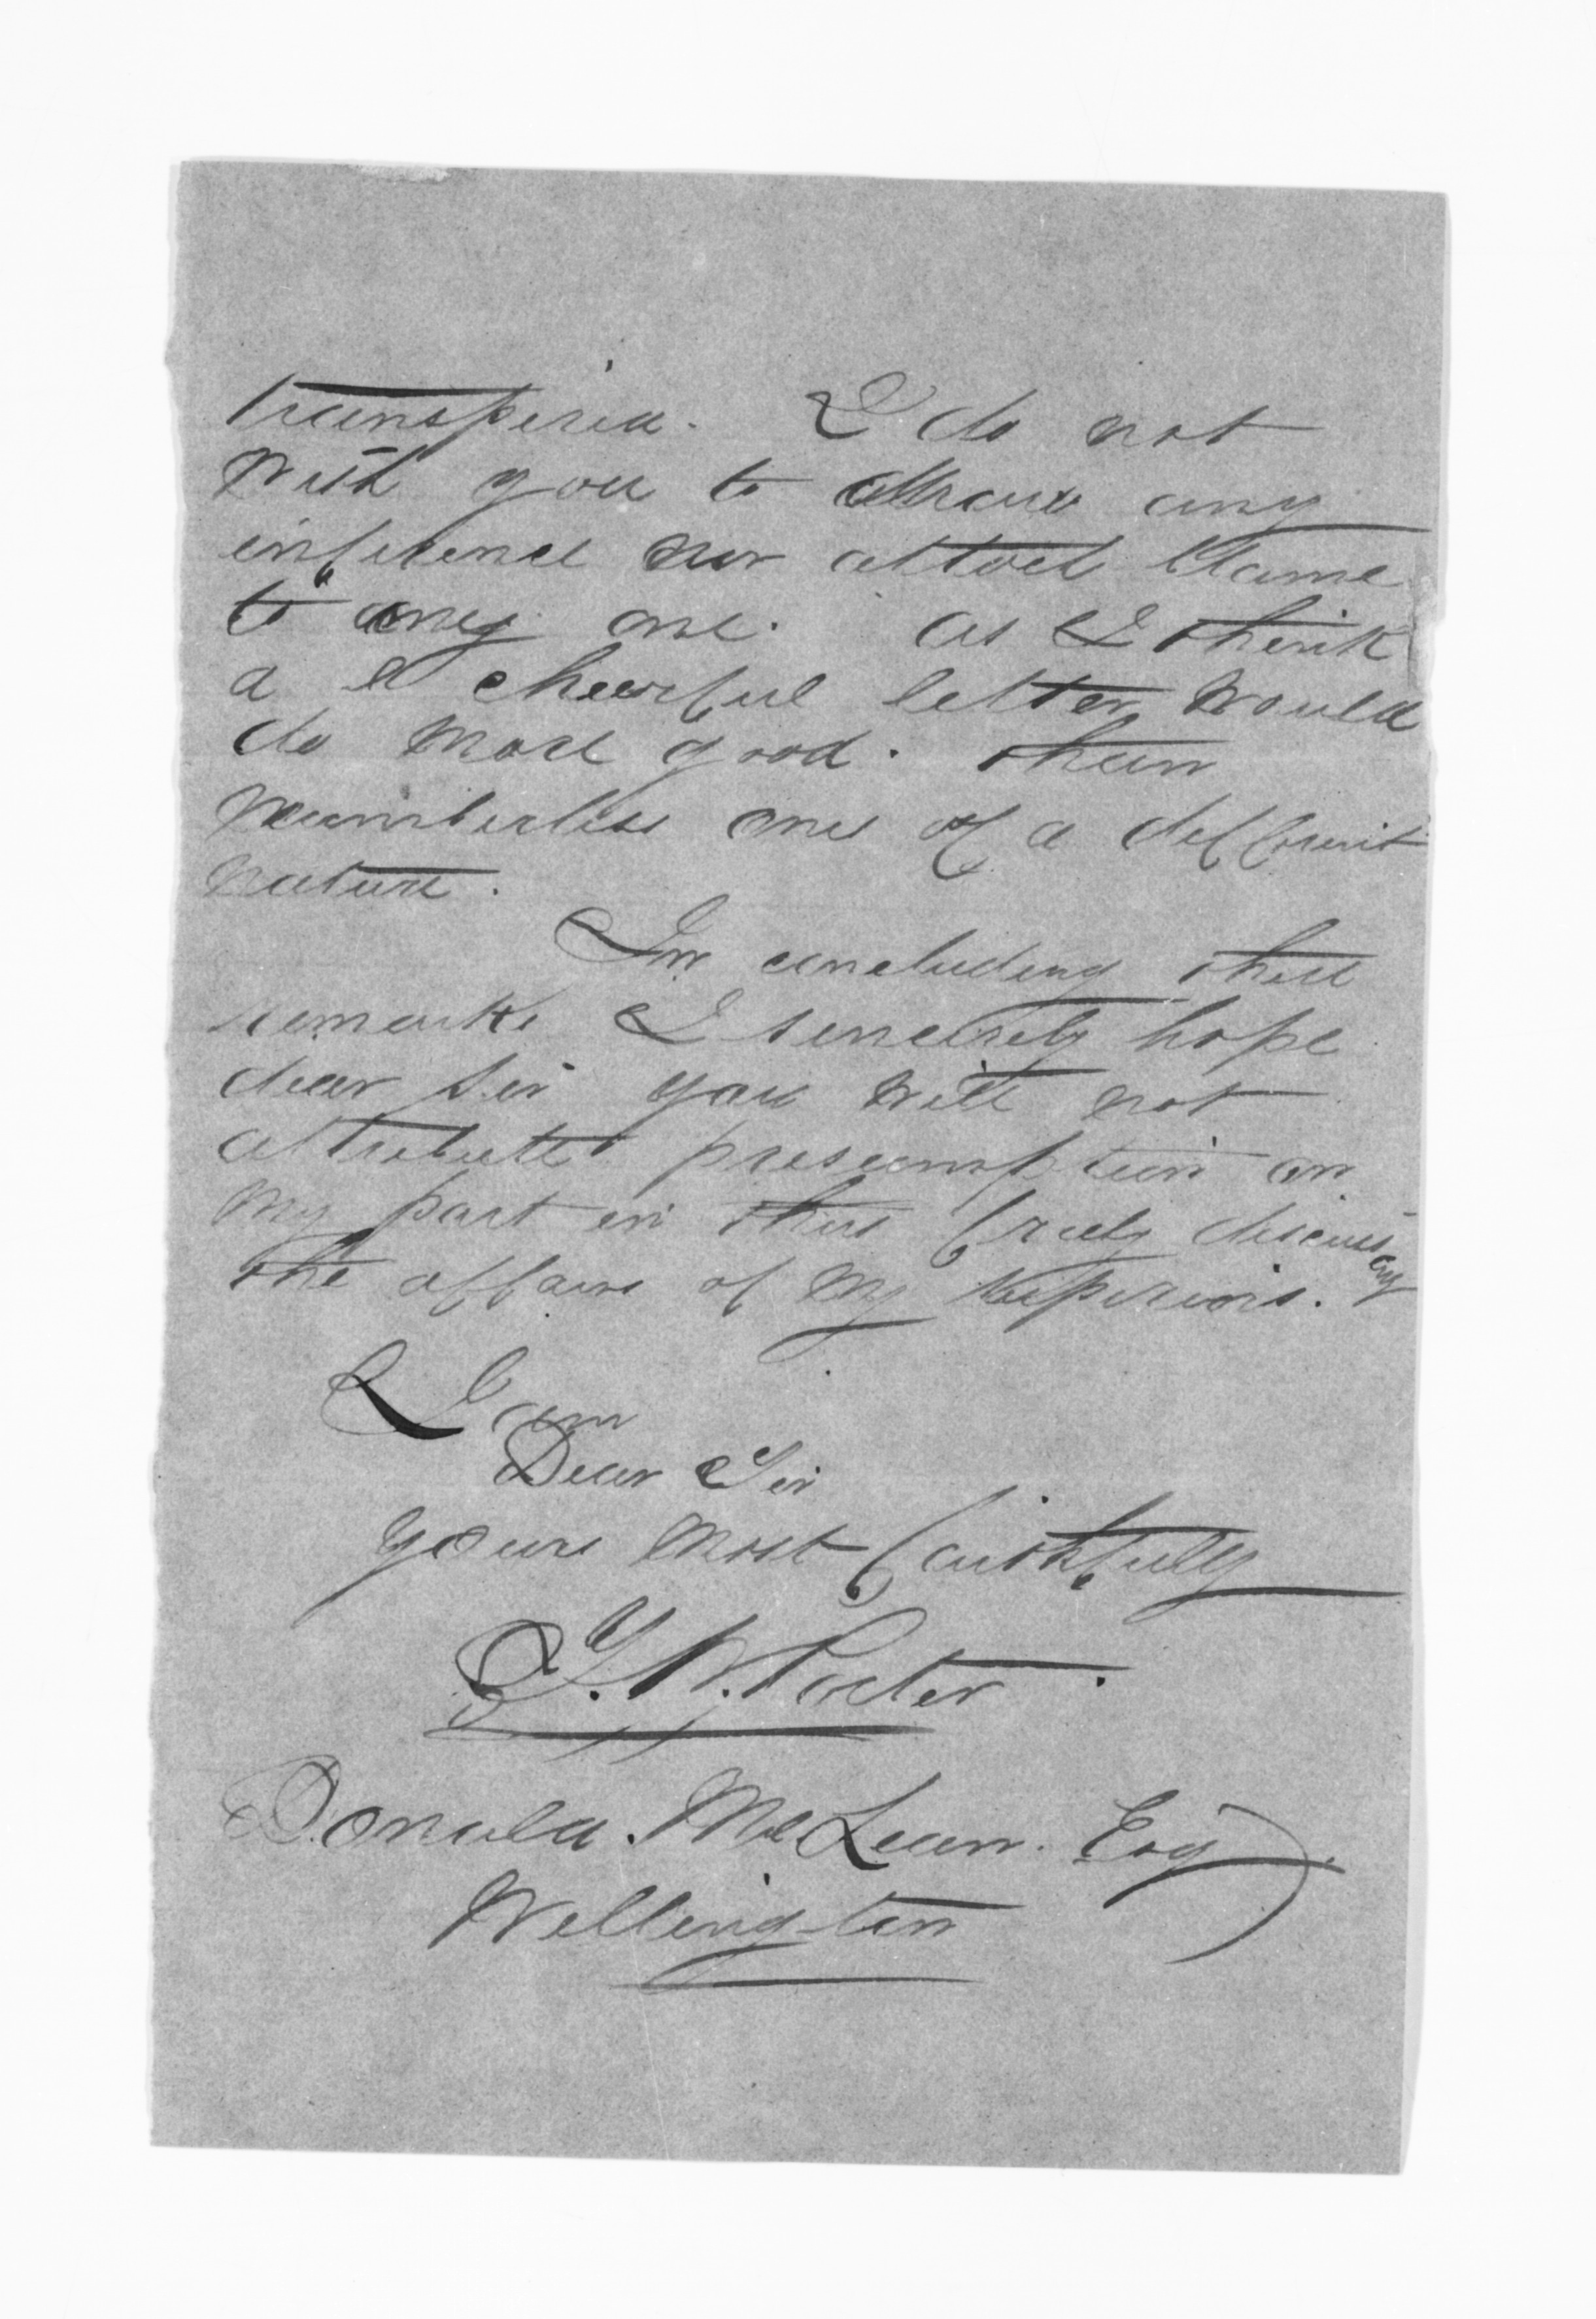 transpired. I do not
wish you to draw any
inference nor attach blame
to any one. as I think
a cheerful letter would
do more good. than
numberless ones of a different
nature.
In concluding these
remarks I sincerely hope
dear Sir you will not
attribute presumption on
my part in thus freely discussing
the affairs of my superiors.
I am
Dear Sir
yours most faithfully
J. W. Porter.
Donald. McLean. Esq
Wellington